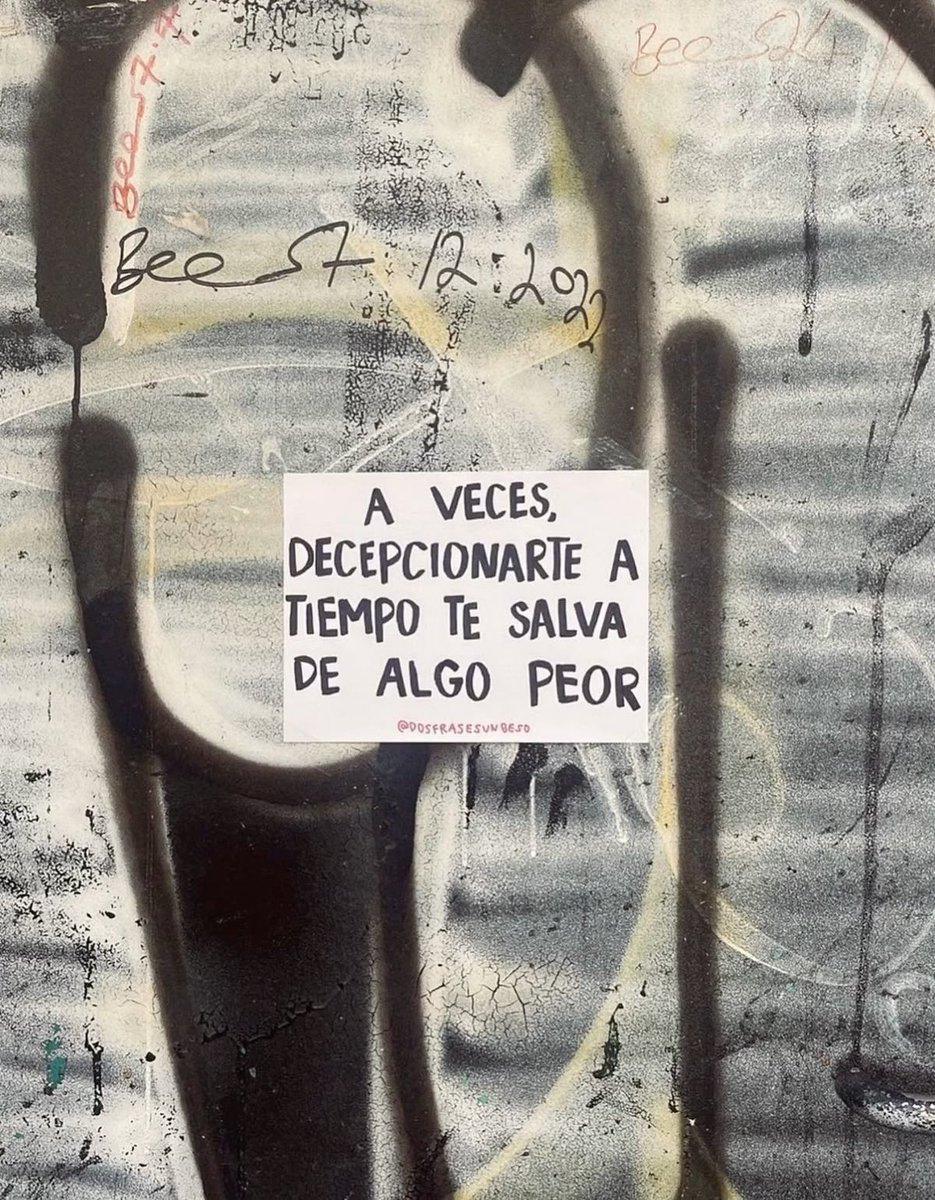 Bee S7
Bee S7 12:2022
A VECES,
DECEPCIONARTE A
TIEMPO TE SALVA
DE ALGO PEOR
@DOSFRASESUNBESO